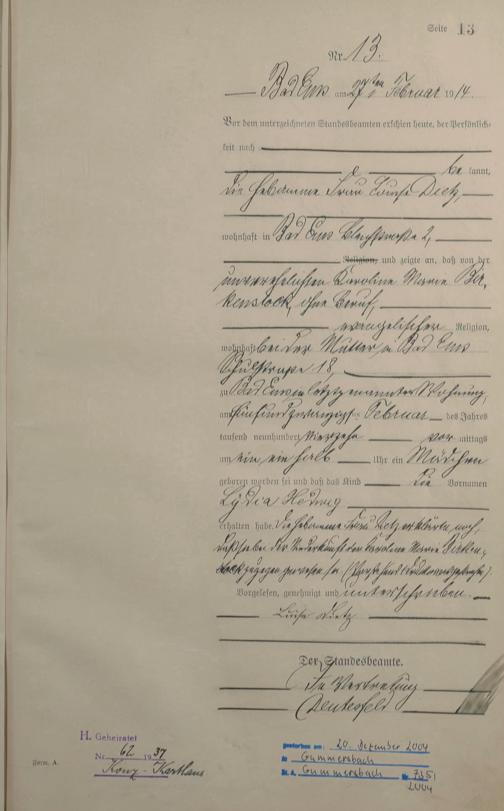 Seite 13
Nr. 13.
Bad Ems am 27ten Februar 1914.
Vor dem unterzeichneten Standesbeamten erschien heute, der Persönlich-
keit nach
be kannt,
die Hebamme Frau Louise Dietz,
wohnhaft in Bad Ems Bleichstraße 2,
Religion, und zeigte an, daß von der
unverehelichten Karoline Marie Bir-
kenstock, ohne Beruf,
evangelischer Religion,
wohnhaft bei der Mutter in Bad Ems
Schulstraße 18,
zu Bad Ems in letztgenannter Wohnung,
am fünfundzwanzigsten Februar des Jahres
tausend neunhundert vierzehn vor mittags
um ein ein halb Uhr ein Mädchen
geboren worden sei und daß das Kind die Vornamen
Lydia Hedwig
erhalten habe. Die Hebamme Frau Dietz erklärte noch,
daß sie bei der Niederkunft der Karoline Marie Birken-
stock zugegen gewesen sei.
Vorgelesen, genehmigt und unterschrieben.
Luise Dietz
Der Standesbeamte.
In Vertretung
H. Geheiratet
Nr. 62 1937
Konz-Karthaus
Germ. A.
gestorben am: 20. Dezember 2004
in Gummersbach
St. A. Gummersbach Nr. 735/
2004